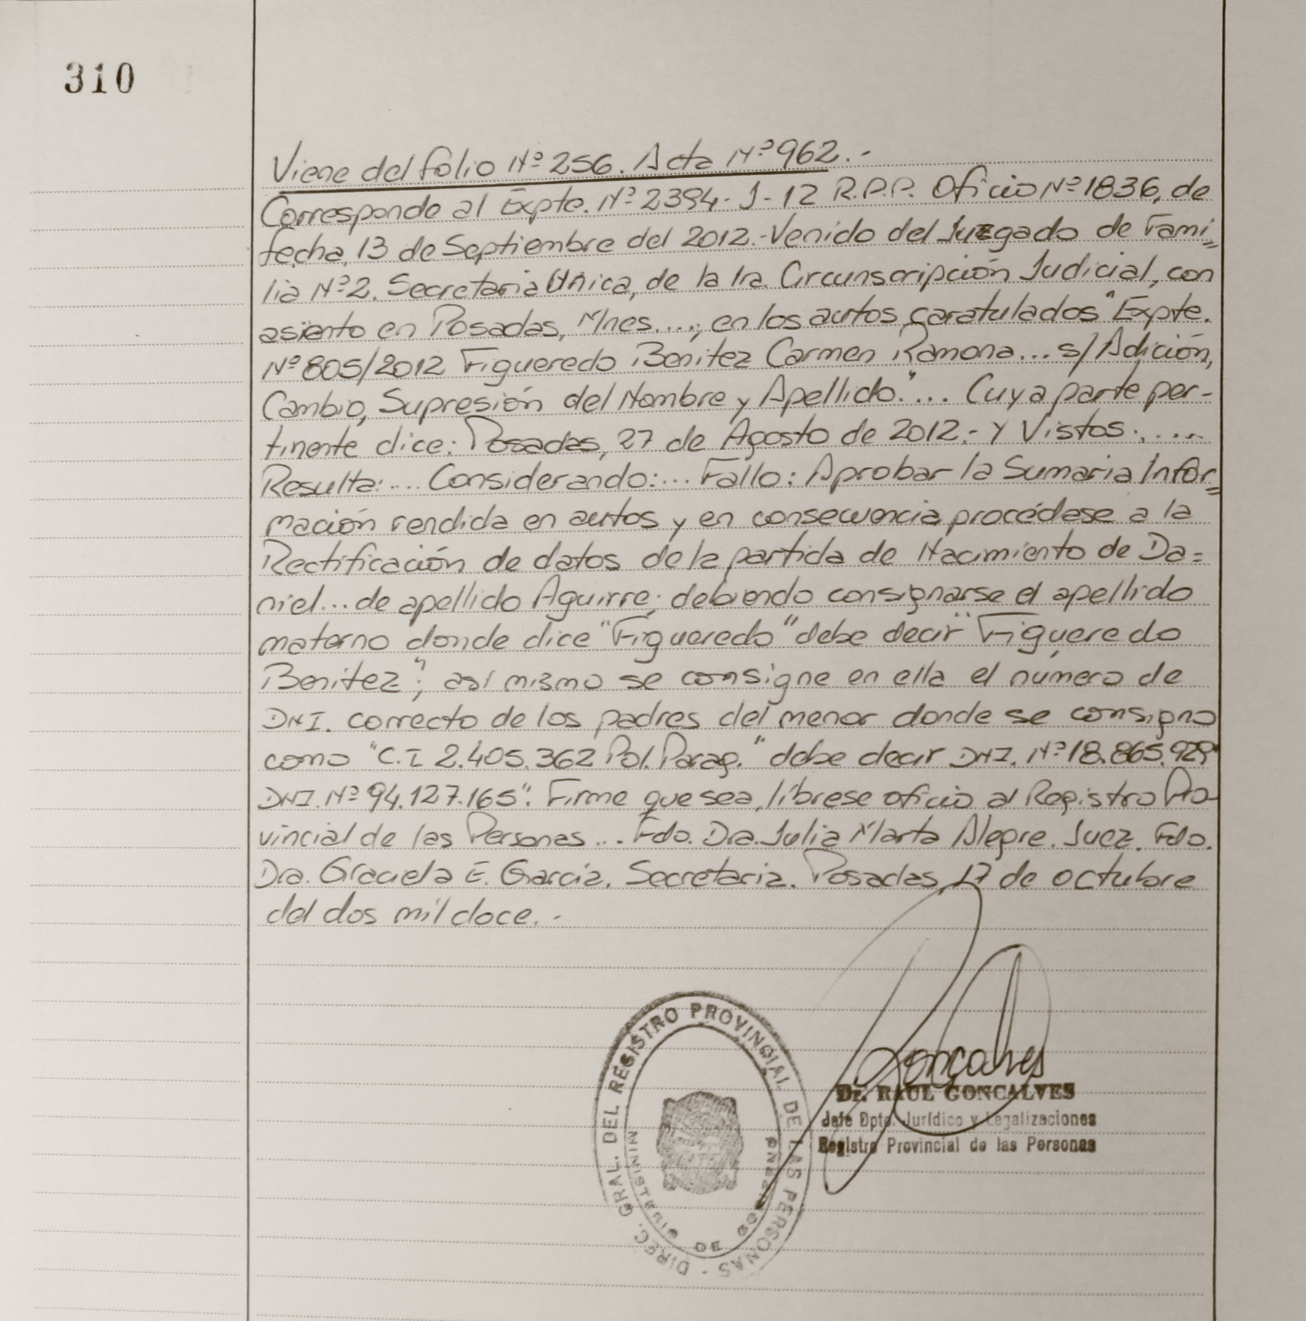 310
Viene del folio Nº 256. Acta Nº 962.-
Corresponde al Expte. Nº 2394-J-12 R.P.P. Oficio Nº 1836, de
fecha, 13 de Septiembre del 2012.-Venido del Juzgado de Fami=
lia Nº 2, Secretaria Unica, de la 1ra. Circunscripción Judicial, con
asiento en Posadas, Mnes....; en los autos caratulados "Expte.
Nº 805/2012 Figueredo Benitez Carmen Ramona... s/Adición,
Cambio, Supresión del Nombre y Apellido."... Cuya parte per-
tinente dice: Posadas, 27 de Agosto de 2012.- Y Vistos:.....
Resulta:... Considerando:... Fallo: Aprobar la Sumaria Infor=
mación rendida en autos y en consecuencia procédese a la
Rectificación de datos de la partida de Nacimiento de Da=
niel... de apellido Aguirre; debiendo consignarse el apellido
materno donde dice "Figueredo" debe decir "Figueredo
Benitez"; así mismo se consigne en ella el número de
DNI. correcto de los padres del menor donde se consigno
como "C.I 2.405.362 Pol. Parag." debe decir DNI. Nº 18.865.929
DNI Nº 94.127.165". Firme que sea, líbrese oficio al Registro Pro-
vincial de las Personas... Fdo. Dra. Julia Marta Alegre. Juez. Fdo.
Dra. Graciela E. Garcia. Secretaria. Posadas, 17 de octubre
del dos mil doce.-
DIREC. GRAL. DEL REGISTRO PROVINCIAL DE LAS PERSONAS -
MINISTERIO DE GOBIERNO
Goncalves
Dr. RAUL GONCALVES
Jefe Dpto. Jurídico y Legalizaciones
Registro Provincial de las Personas